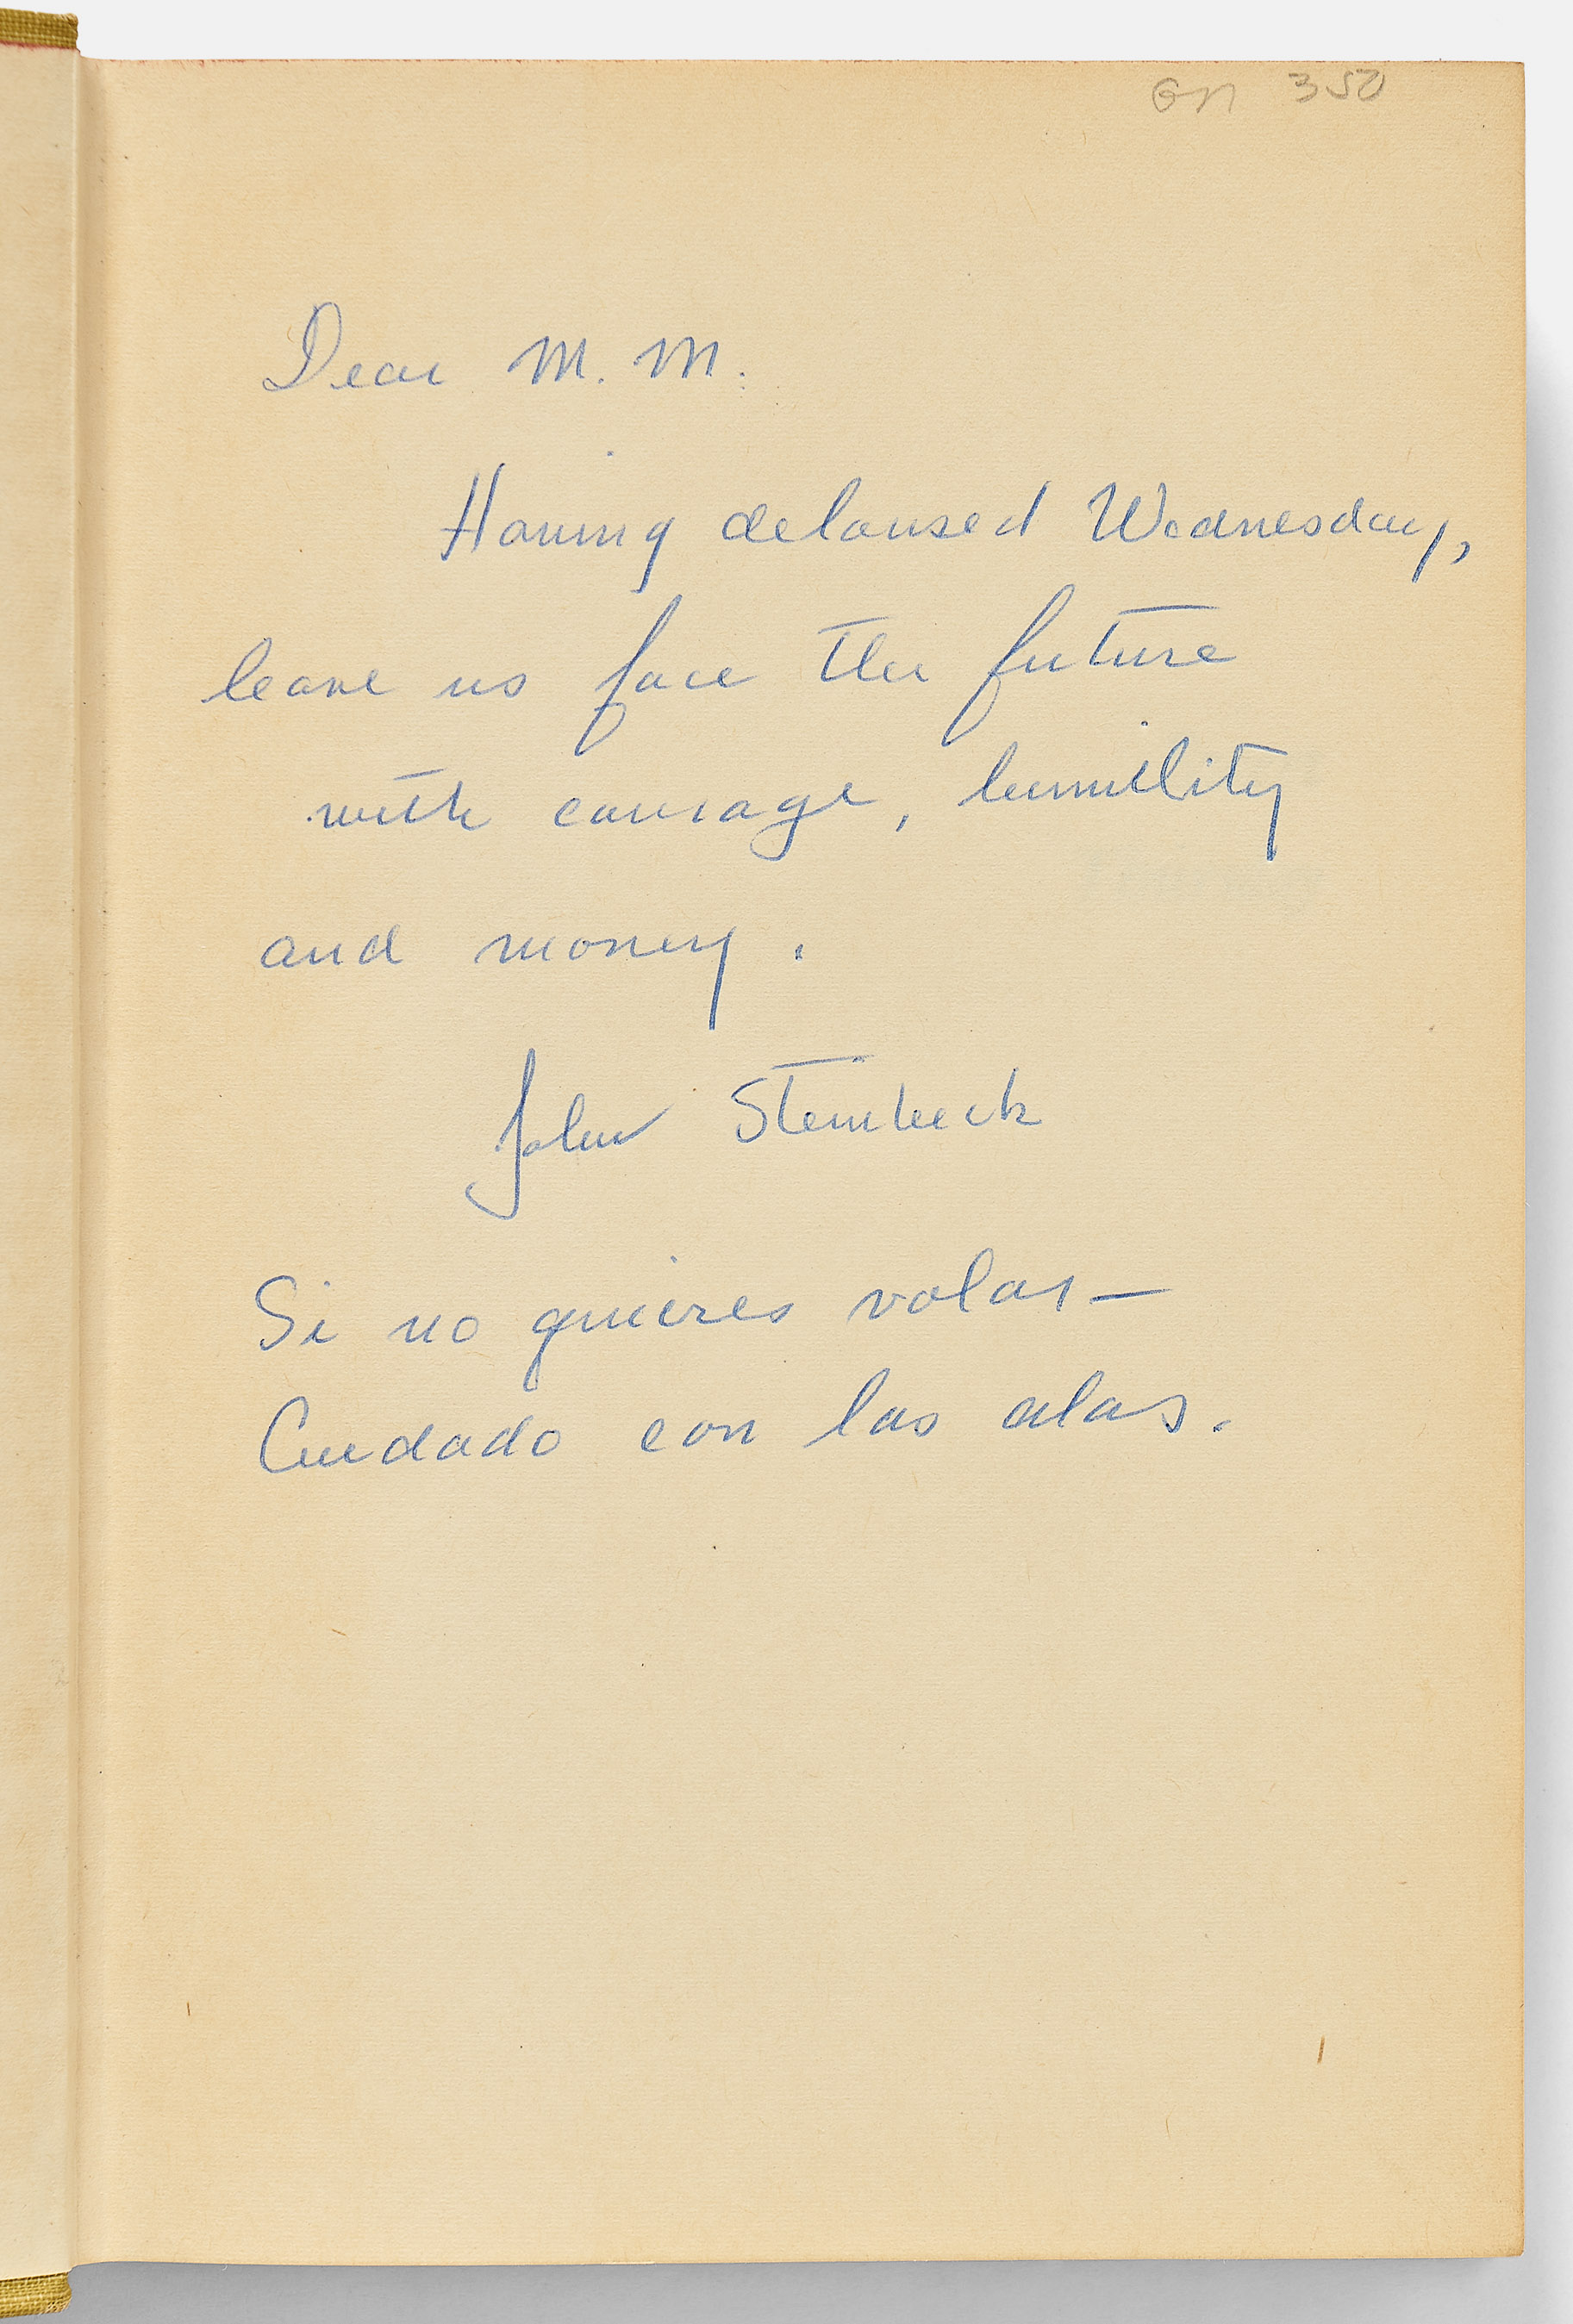 GN 350
Dear M. M.:
Having deloused Wednesday,
leave us face the future
with courage, humility
and money.
John Steinbeck
Si no quieres volar—
Cuidado con las alas.